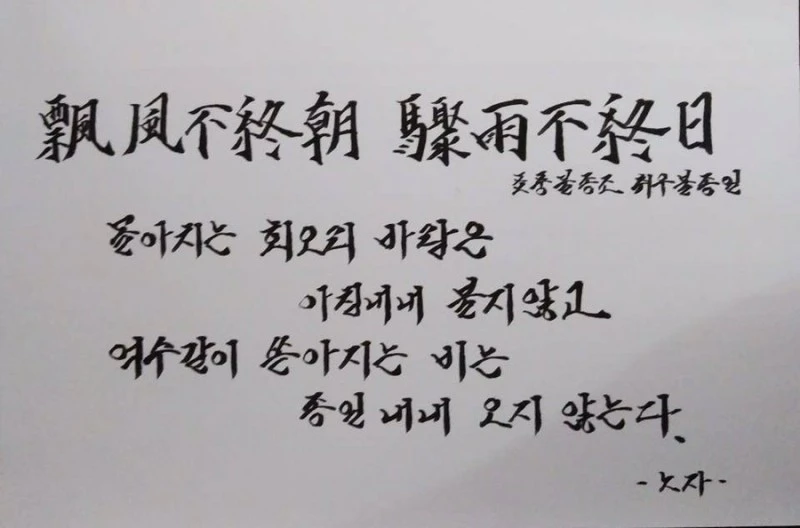 飄風不終朝 驟雨不終日
표풍불종조 취우불종일
몰아치는 회오리 바람은
아침내내 불지않고
억수같이 쏟아지는 비는
종일 내내 오지 않는다.
-노자-